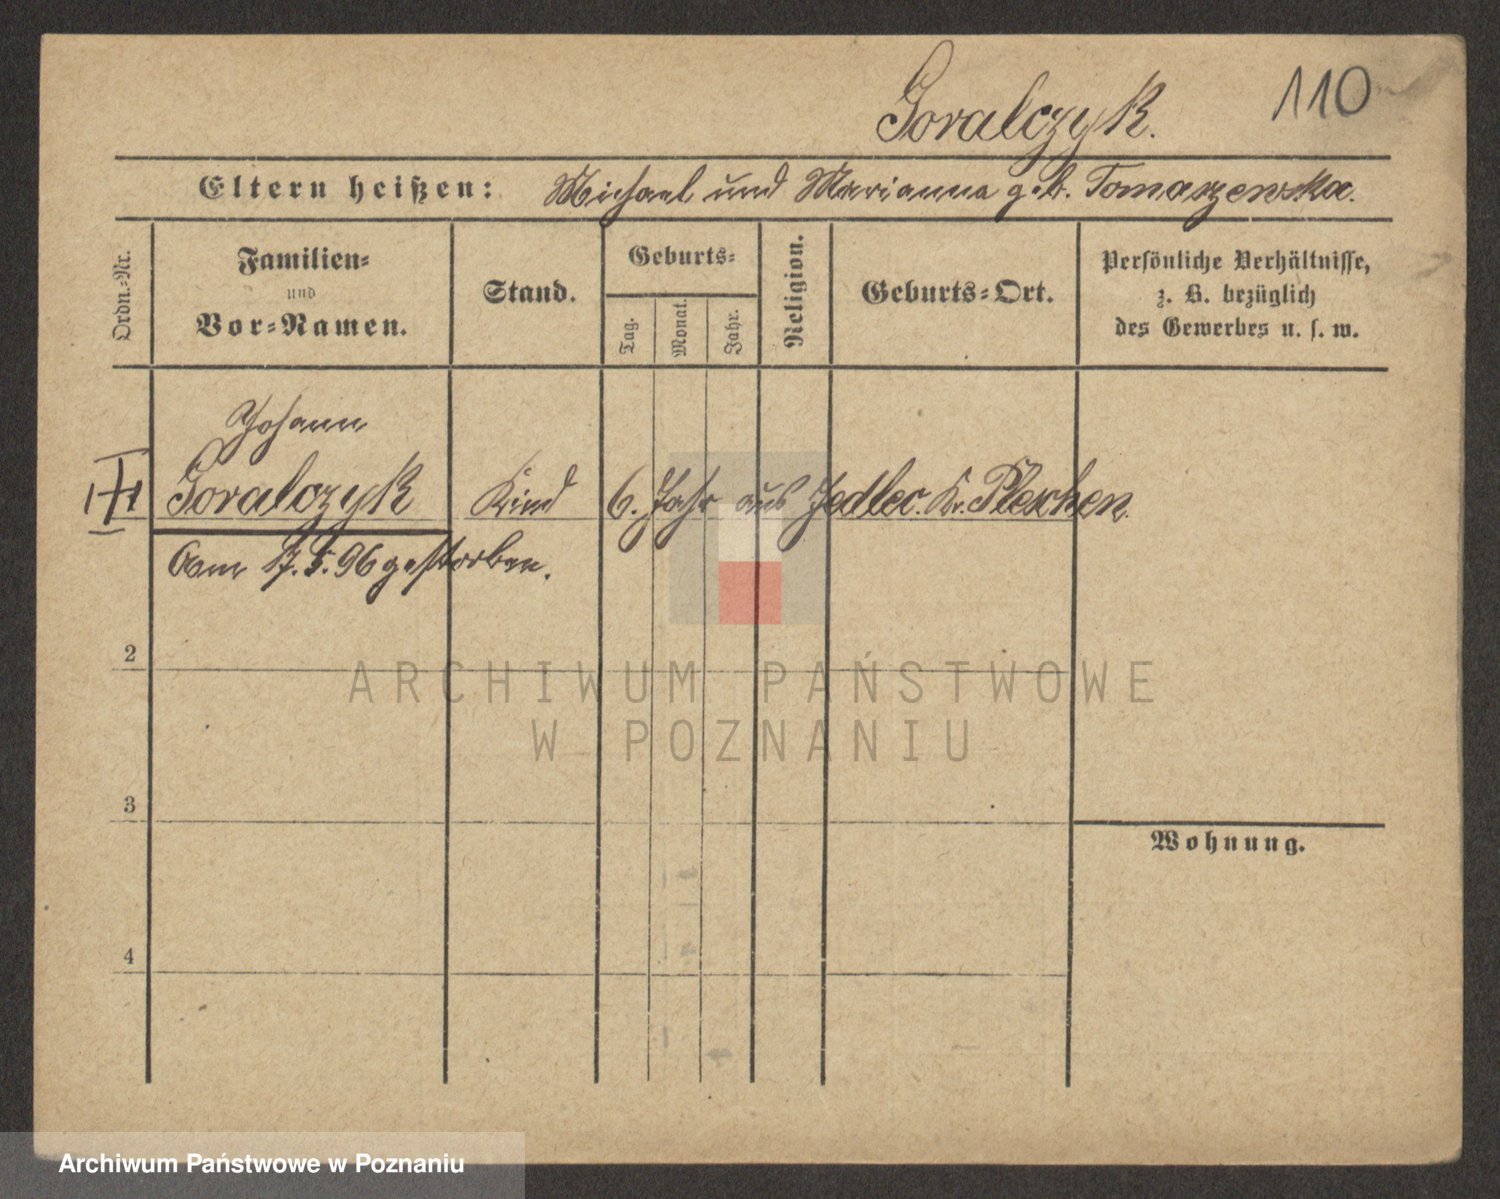 Goralczyk.
110
Eltern heißen: Michael und Marianna geb. Tomaszewska.
Ordn.-Nr.
Familien-
und
Vor-Namen.
Stand.
Geburts-
Tag.
Monat.
Jahr.
Religion.
Geburts-Ort.
Persönliche Verhältnisse,
z. B. bezüglich
des Gewerbes u. s. w.
Johann
Goralczyk Kind 6. Jahr aus Jedlec. Kr. Pleschen.
Am 17. 5. 96 gestorben.
2
ARCHIWUM PAŃSTWOWE
W POZNANIU
3
Wohnung.
4
Archiwum Państwowe w Poznaniu